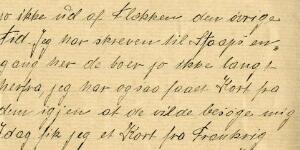 jo ikke ud af Flekken den øvrige
Tid. Jeg har skreven til Staaps en-
gang her de boer jo ikke langt
herfra, jeg har ogsaa faaet Kort fra
dem igjen at de vilde besøge mig
Idag fik jeg et Kort fra Frankrig